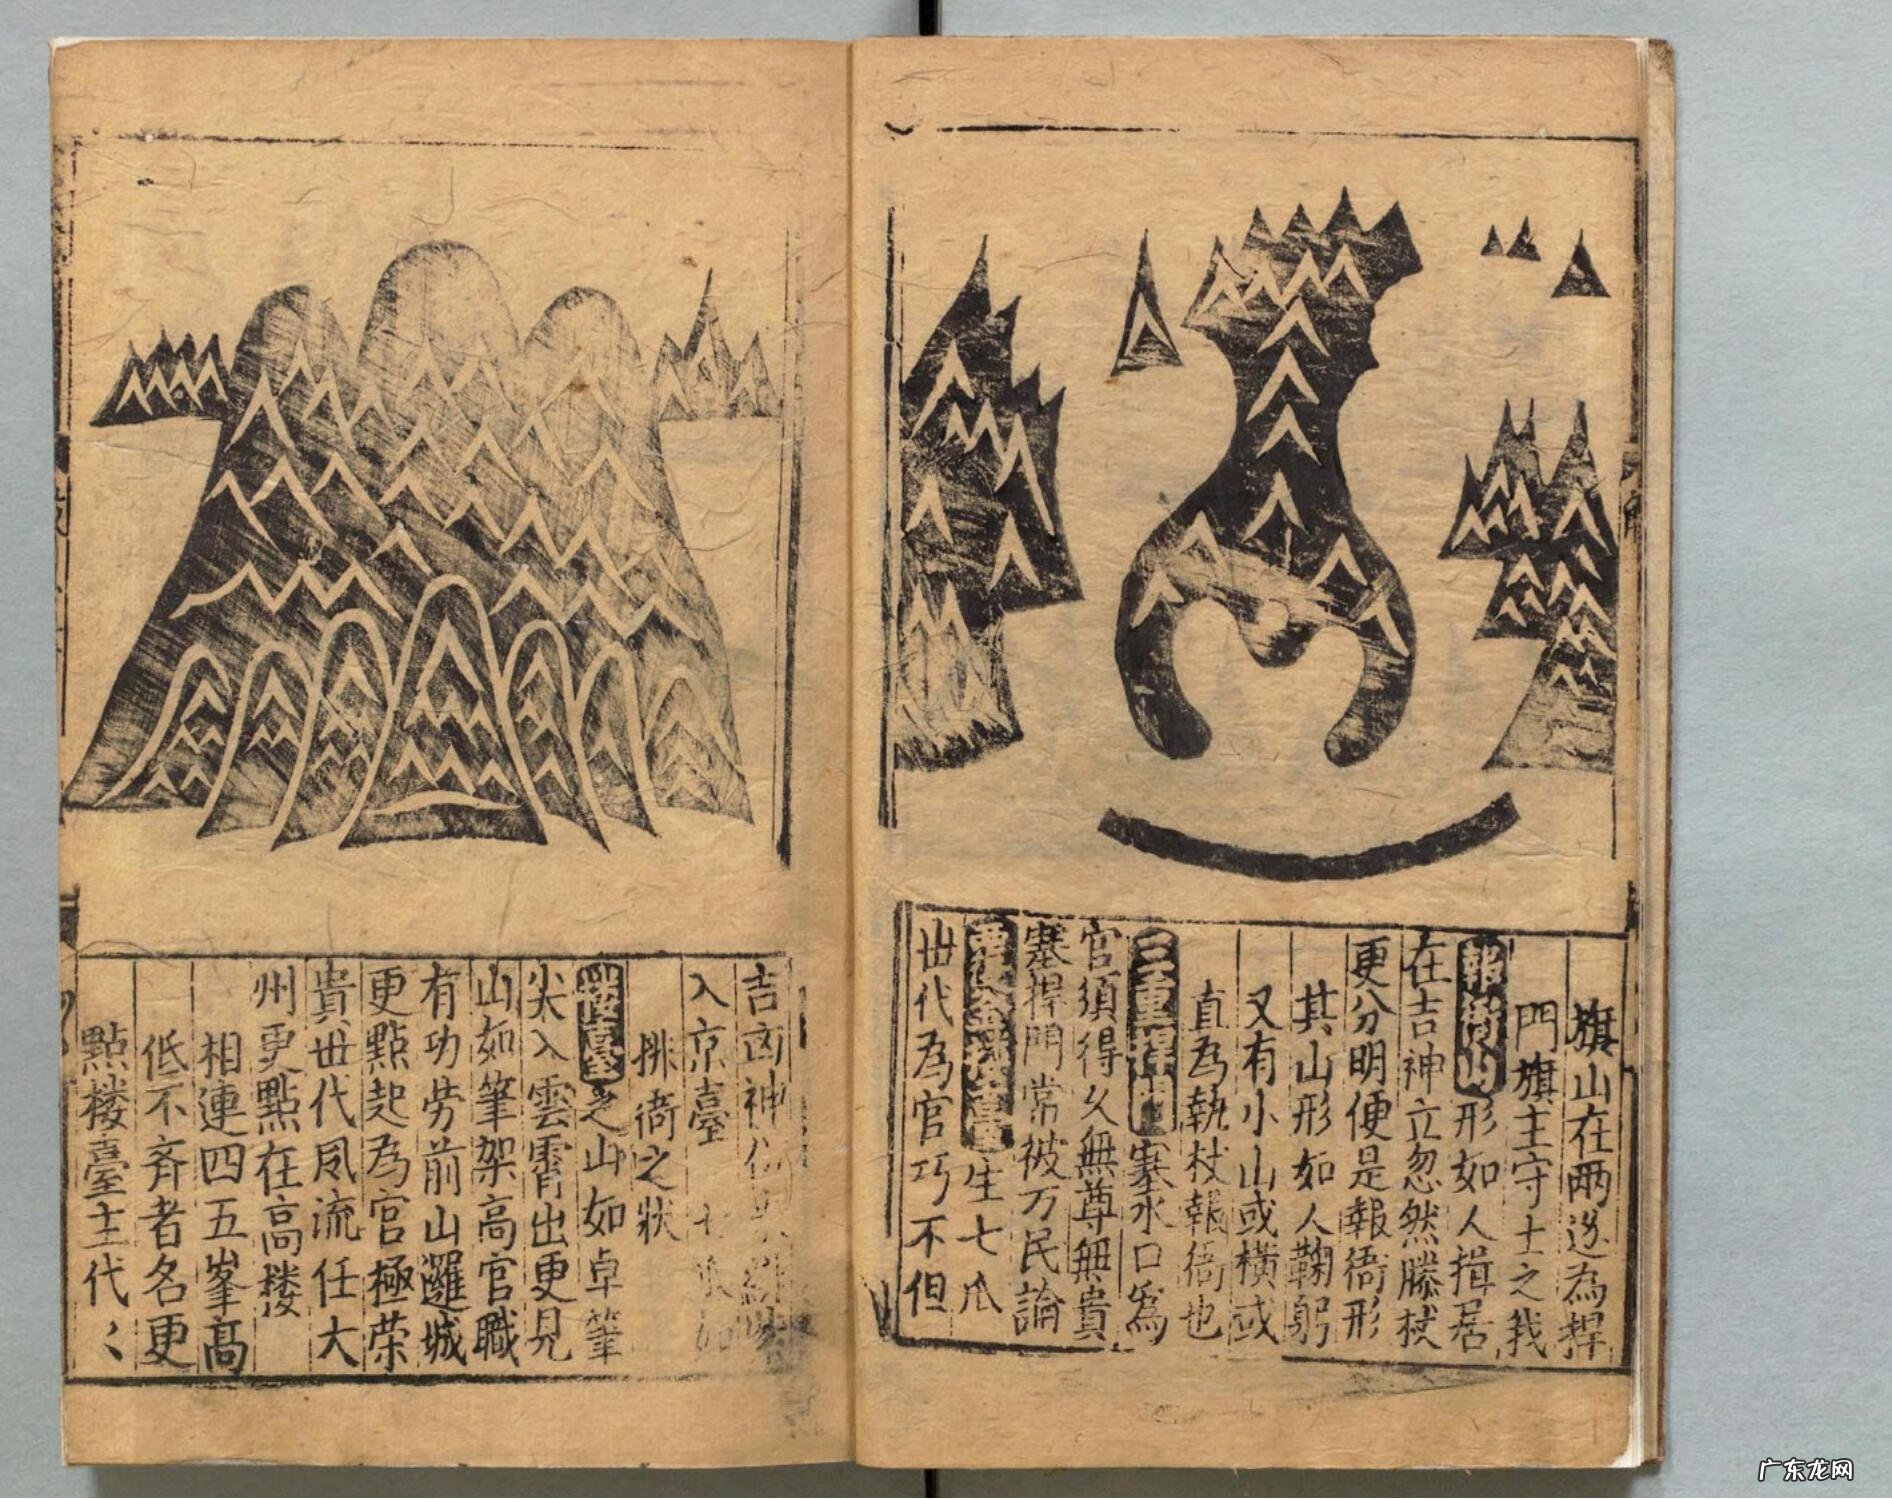 旗山在兩边為捍
門旗主守土之我
報衙山形如人揖居
在吉神立忽然滕杖
更分明便是報衙形
其山形如人鞠躬
又有小山或橫或
直為執杖報衙也
三重捍門塞水口爲
官須得久無尊無貴
塞捍門常被万民論
生七瓜
世代為官巧不但
吉凶神
入京臺
排衙之狀
之山如卓筆
尖入雲霄出更見
山如筆架高官職
有功劳前山邏城
更點起為官極荣
貴世代風流任大
州更點在高楼
相連四五峯高
低不齊者名更
點楼臺主代〻
广东龙网